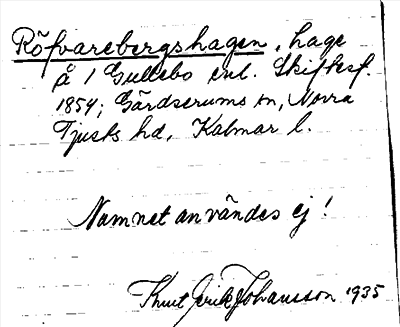 Röfvarebergshagen, hage
å 1 Gullebo enl. Skiftesf.
1854; Gärdserums sn, Norra
Tjusts hd, Kalmar l.
Namnet användes ej!
Knut Erik Johansson 1935